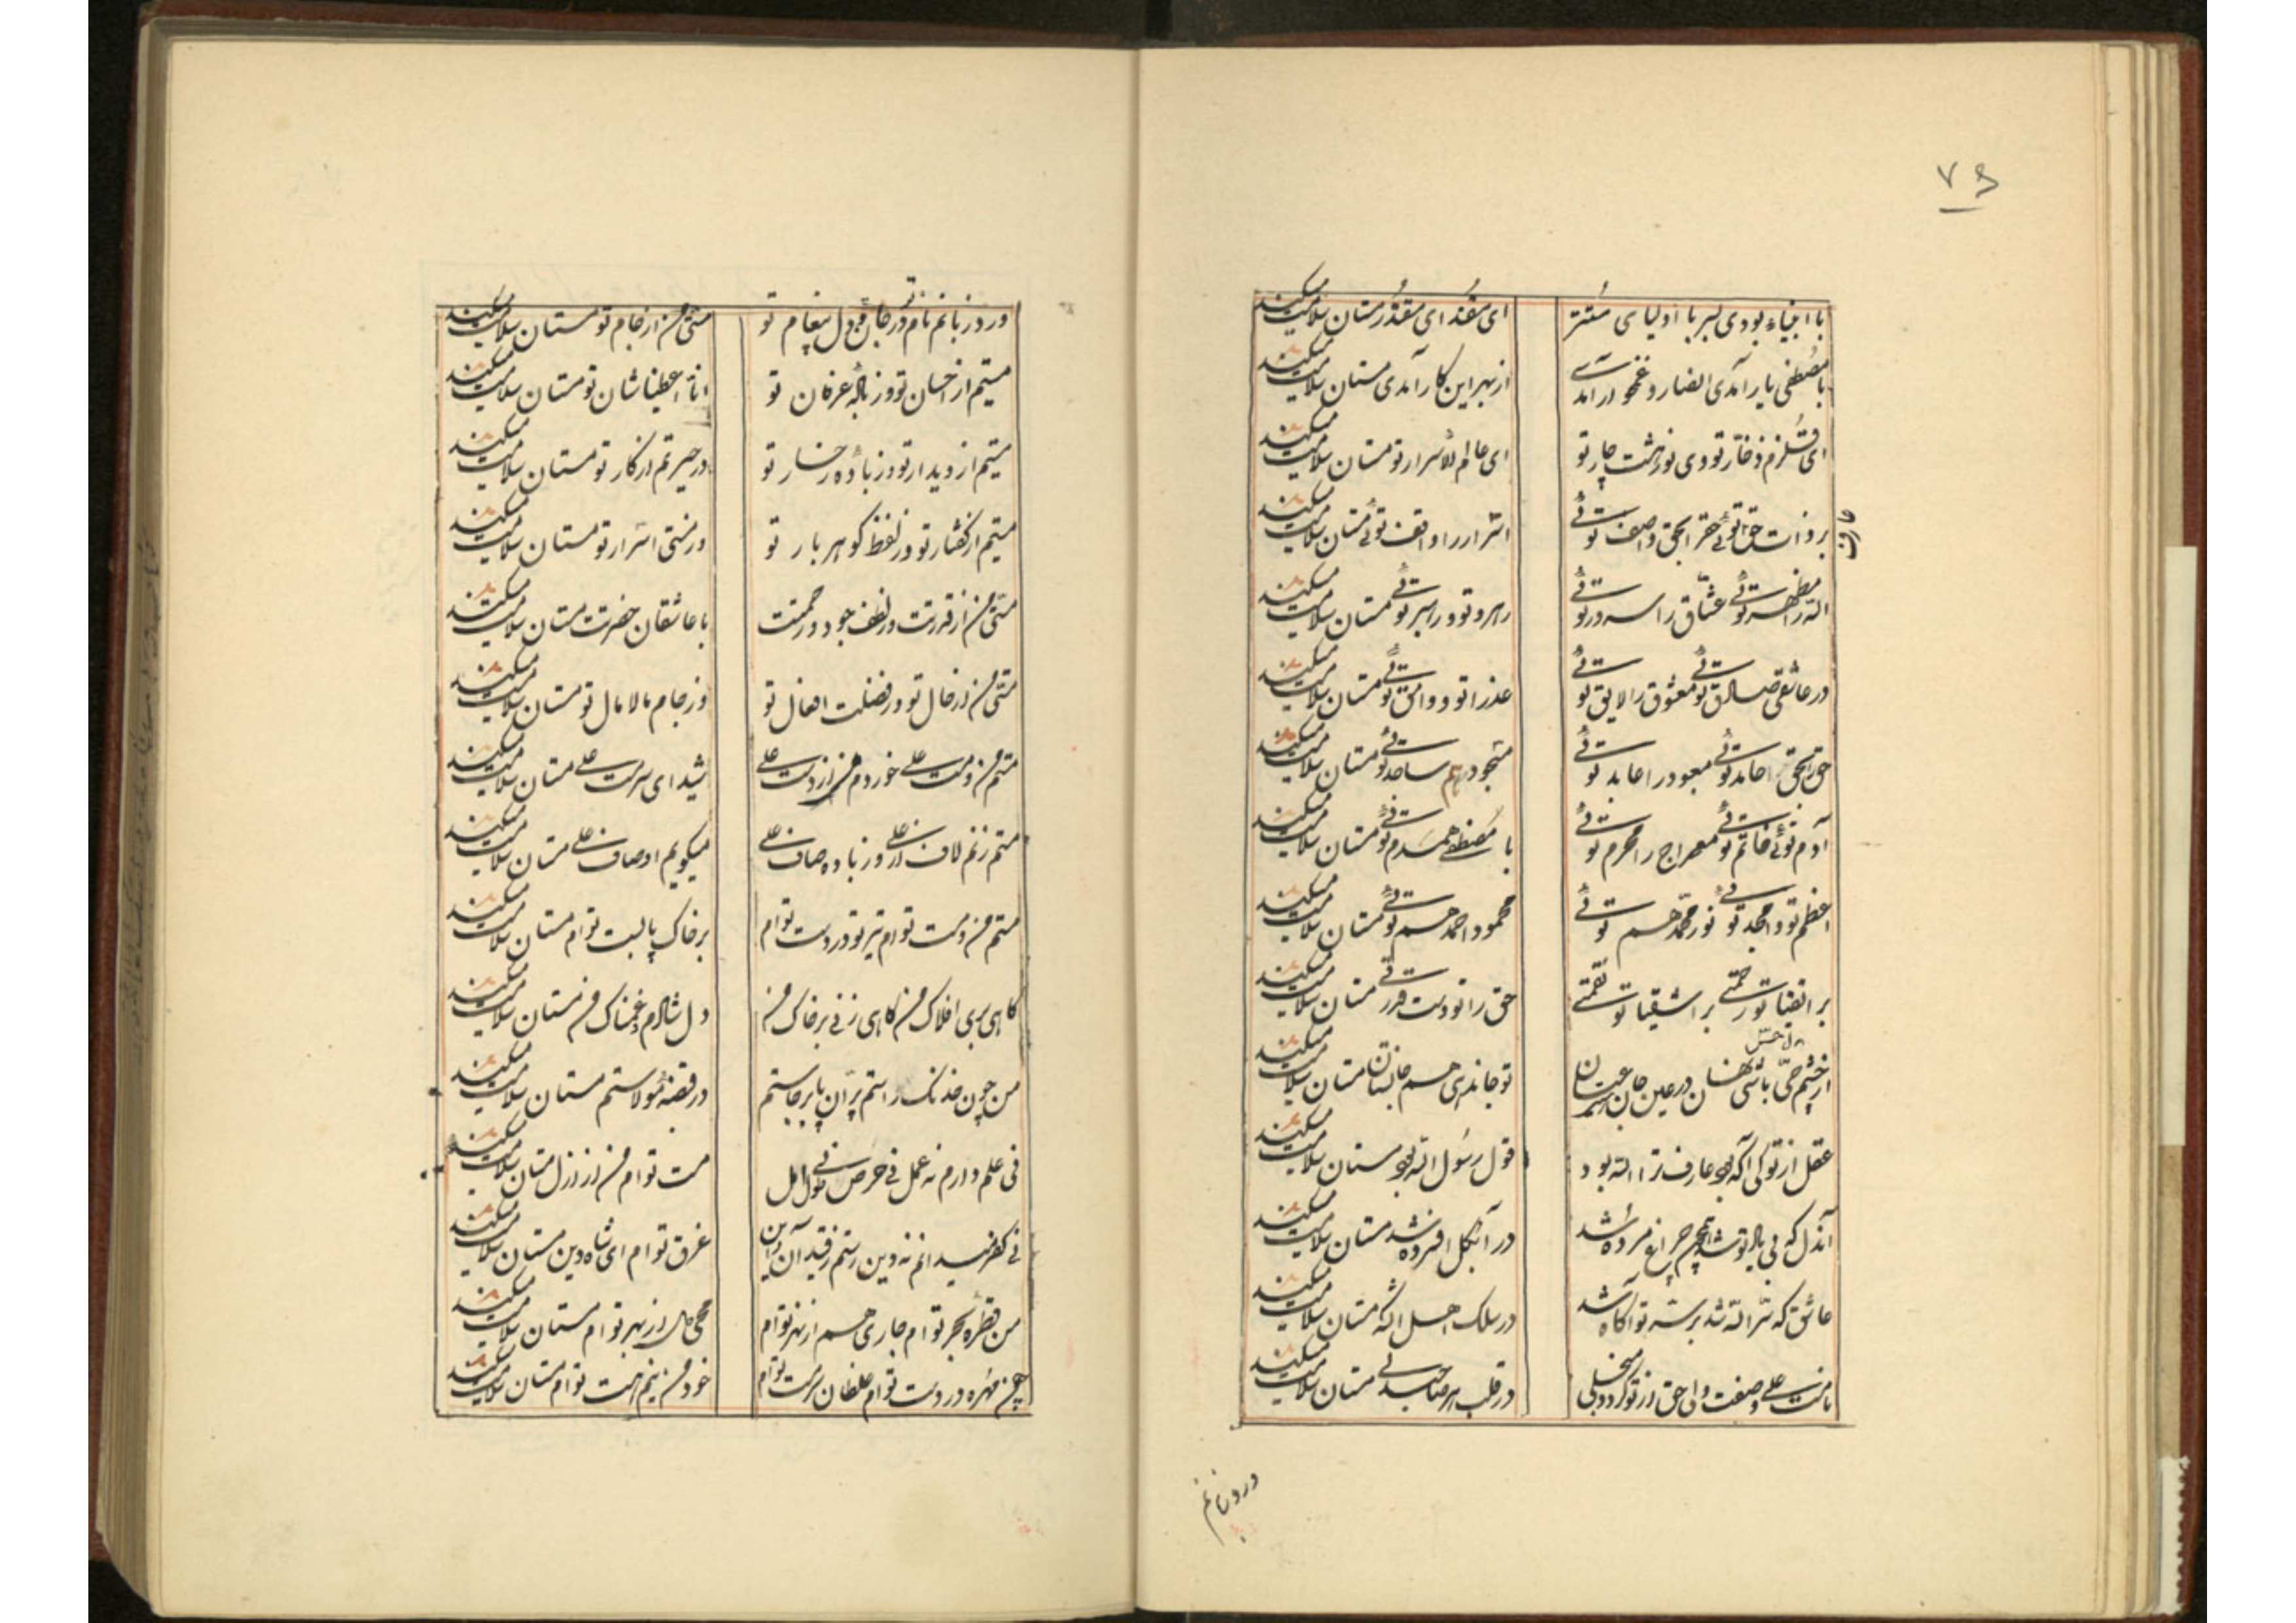 ۷۶
با انبیاء بودی بسر با اولیای مستتر ای مقتدا ای مقتدر مستان سلامت میکنند
با مصطفی یار آمدی انصار و غمخوار آمدی از بهر این کار آمدی مستان سلامت میکنند
ای قلزم ذخّار تو وی نوز هشت چار تو ای عالم الاسرار تو مستان سلامت میکنند
بر ذات حق توئی حقرا بحق واصف توئی اسرار را واقف توئی مستان سلامت میکنند
عارف
الله را مظهر توئی عشّاق را سرور توئی رهرو تو و رهبر توئی مستان سلامت میکنند
در عاشقی صادق توئی معشوق را لایق توئی عذرا تو و وامق توئی مستان سلامت میکنند
حق را بحق حامد توئی معبود را عابد توئی مسجود هم ساجد توئی مستان سلامت میکنند
آدم توئی خاتم توئی معراج را محرم توئی با مصطفی همدم توئی مستان سلامت میکنند
اعظم تو و امجد توئی نور محمّد هم توئی محمود احمد هم توئی مستان سلامت میکنند
بر اتقیا تو رحمتی بر اشقیا تو نقمتی حق را تو دست قدرتی مستان سلامت میکنند
از چشم حسّ باشی نهان در عین جان عیان تو جان هم جانستان مستان سلامت میکنند
عقل از تو کی آگه بود عارف ترا الله بود قول رسول الله بود مستان سلامت میکنند
آندل که بی یاد تو شد همچون چراغ مرده شد در آب و گل افسرده شد مستان سلامت میکنند
عاشق که سرّ الله شد بر سرّ تو آگاه شد در سلک اهل الله شد مستان سلامت میکنند
نامت علی وصفت ولی حق از تو گردد منجلی در قلب هر صاحبدلی مستان سلامت میکنند
ورد زبانم
ورد زبانم نام تو در جان و دل پیغام تو مستی من از جام تو مستان سلامت میکنند
مستم از احسان تو وز بادهٔ عرفان تو انّا اعطینا شان تو مستان سلامت میکنند
مستم از دیدار تو وز بادهٔ رخسار تو در حیرتم از کار تو مستان سلامت میکنند
مستم از گفتار تو وز لفظ گوهر بار تو در مستی اسرار تو مستان سلامت میکنند
مستی من از قدرتت وز لطف جود و رحمتت با عاشقان حضرتت مستان سلامت میکنند
مستی من از خال تو وز فضلت افعال تو وز جام مالامال تو مستان سلامت میکنند
مستم من و مست علی خوردم من از دست علی شیدای سرمست علی مستان سلامت میکنند
مستم زنم لاف از علی وز باده صاف علی میگویم اوصاف علی مستان سلامت میکنند
مستم من و مست توام تیر تو در دست توام بر خاک پا پست توام مستان سلامت میکنند
گاهی بری افلاک من گاهی زنی بر خاک من دل شادم و غمناک من مستان سلامت میکنند
من چون خدنگ راستم پرّان پا برجاستم در قبضه مولاستم مستان سلامت میکنند
نی علم دارم نه عمل نی حرص نی طول امل مست توام من از ازل مستان سلامت میکنند
نی کفر میدانم نه دین رستم ز قید آن و این غرق توام ای شاه دین مستان سلامت میکنند
من قطره بحر توام جاری هم از نهر توام محیی از بهر توام مستان سلامت میکنند
من مهره در دست توام غلطان سرمست توام خود من نیم هست توام مستان سلامت میکنند